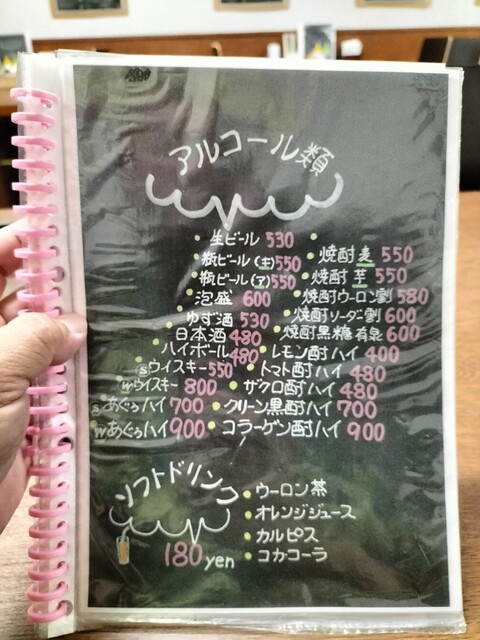 アルコール類
生ビール 530
瓶ビール(キ)550
瓶ビール(ア)550
泡盛 600
ゆず酒 530
日本酒 480
ハイボール 480
Sウイスキー 550
Wウイスキー 800
Sあぐろハイ 700
Wあぐろハイ 900
焼酎 麦 550
焼酎 芋 550
焼酎ウーロン割 580
焼酎ソーダー割 600
焼酎黒糖有泉 600
レモン酎ハイ 400
トマト酎ハイ 480
ザクロ酎ハイ 480
クリーン黒酎ハイ 700
コラーゲン酎ハイ 900
ソフトドリンク
180yen
ウーロン茶
オレンジジュース
カルピス
コカコーラ